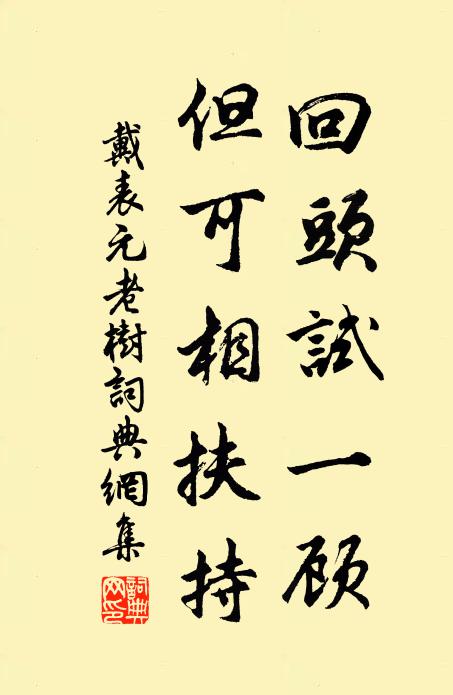 回頭試一顧
但可相扶持
戴表元老樹詞典網集
詞典网印